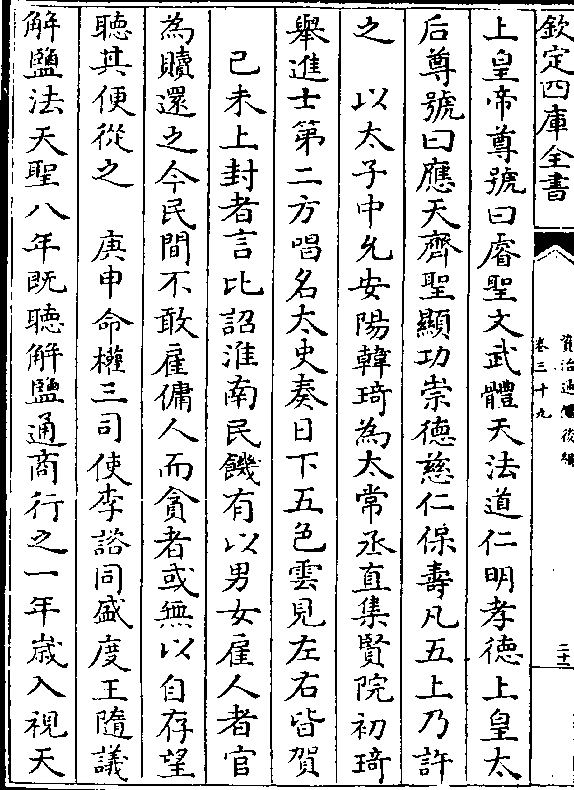 欽定四庫全書
資治通鑑後編
卷三十九
二十
上皇帝尊號曰睿聖文武體天法道仁明孝德上皇太
后尊號曰應天齊聖顯功崇德慈仁保壽凡五上乃許
之　以太子中允安陽韓琦為太常丞直集賢院初琦
舉進士第二方唱名太史奏日下五色雲見左右皆賀
己未上封者言比詔淮南民饑有以男女雇人者官
為贖還之今民間不敢雇傭人而貧者或無以自存望
聽其便從之　庚申命權三司使李諮同盛度王隨議
解鹽法天聖八年既聽解鹽通商行之一年嵗入視天